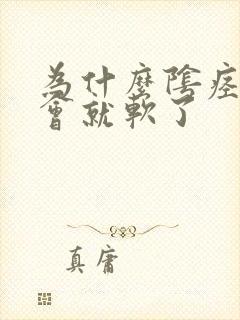 為什麼陰痉
會就軟了
真庸